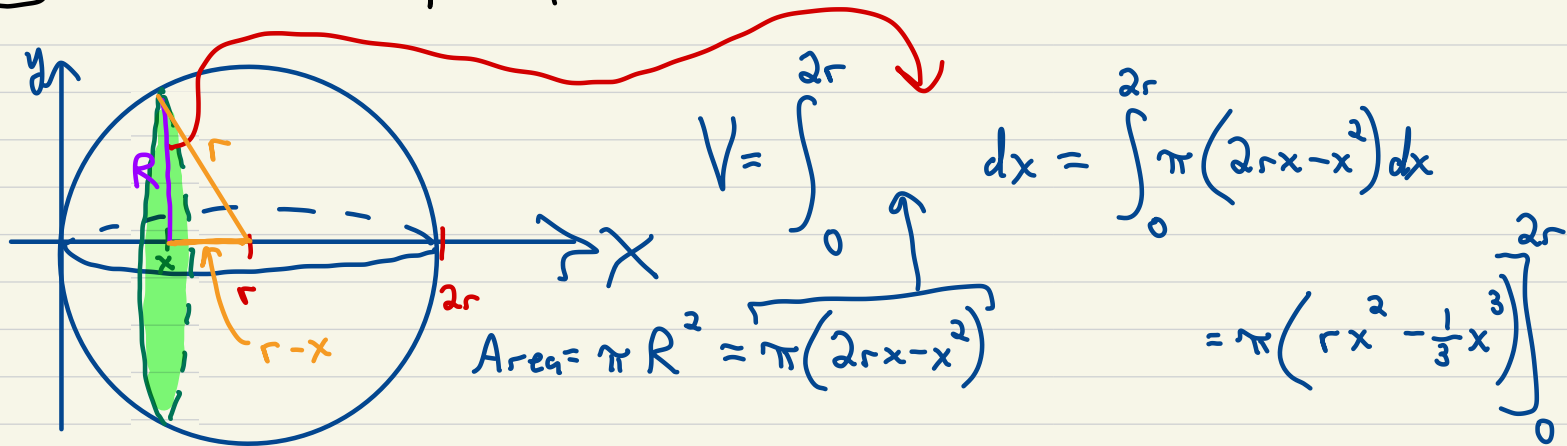 y
R
r
x
r
r - x
2r
X
V = ∫₀^{2r} dx = ∫₀^{2r} π(2rx - x²) dx
Area = πR² = π(2rx - x²)
= π(rx² - 1/3 x³)]₀^{2r}